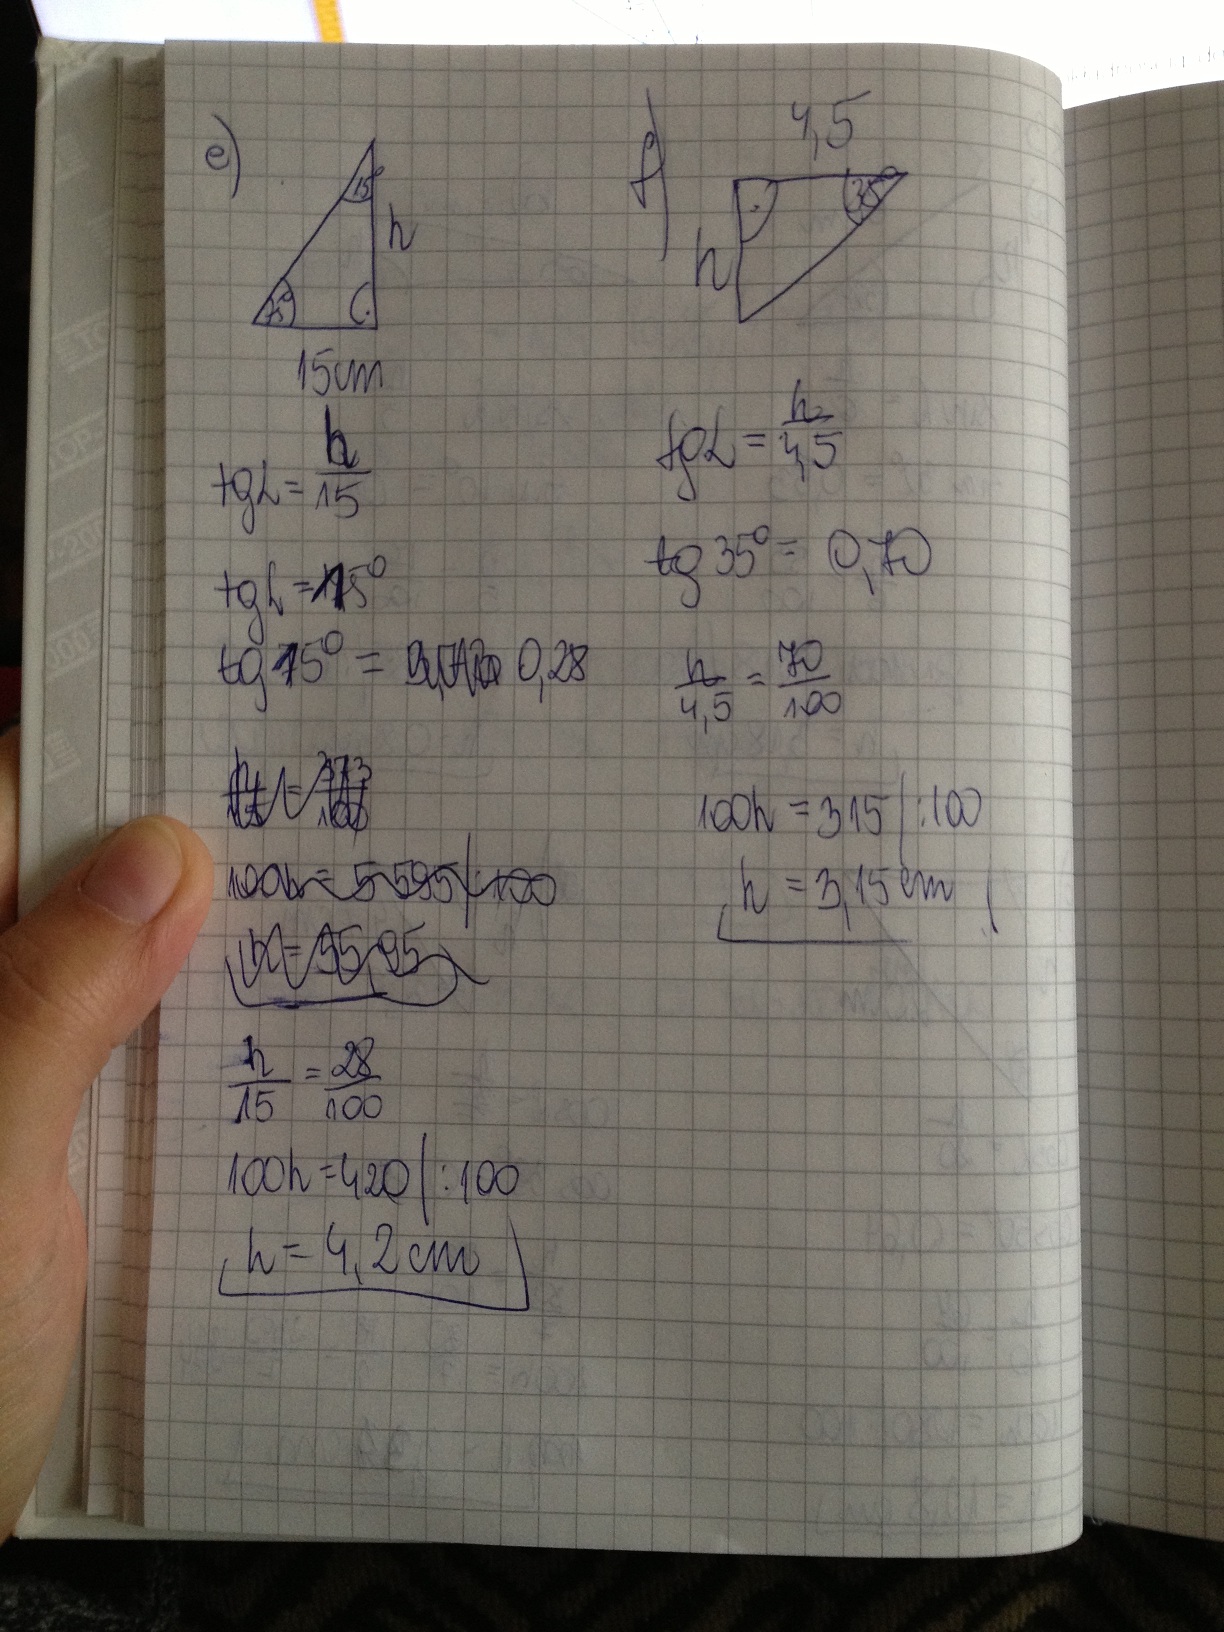 e)
15cm
h
tgα = h/15
tgα = 15°
tg 15° = 0,28
100h = 5595 | :100
h = 55,95
h/15 = 28/100
100h = 420 | :100
h = 4,2 cm
f)
4,5
h
35°
tgα = h/4,5
tg 35° = 0,70
h/4,5 = 70/100
100h = 315 | :100
h = 3,15 cm